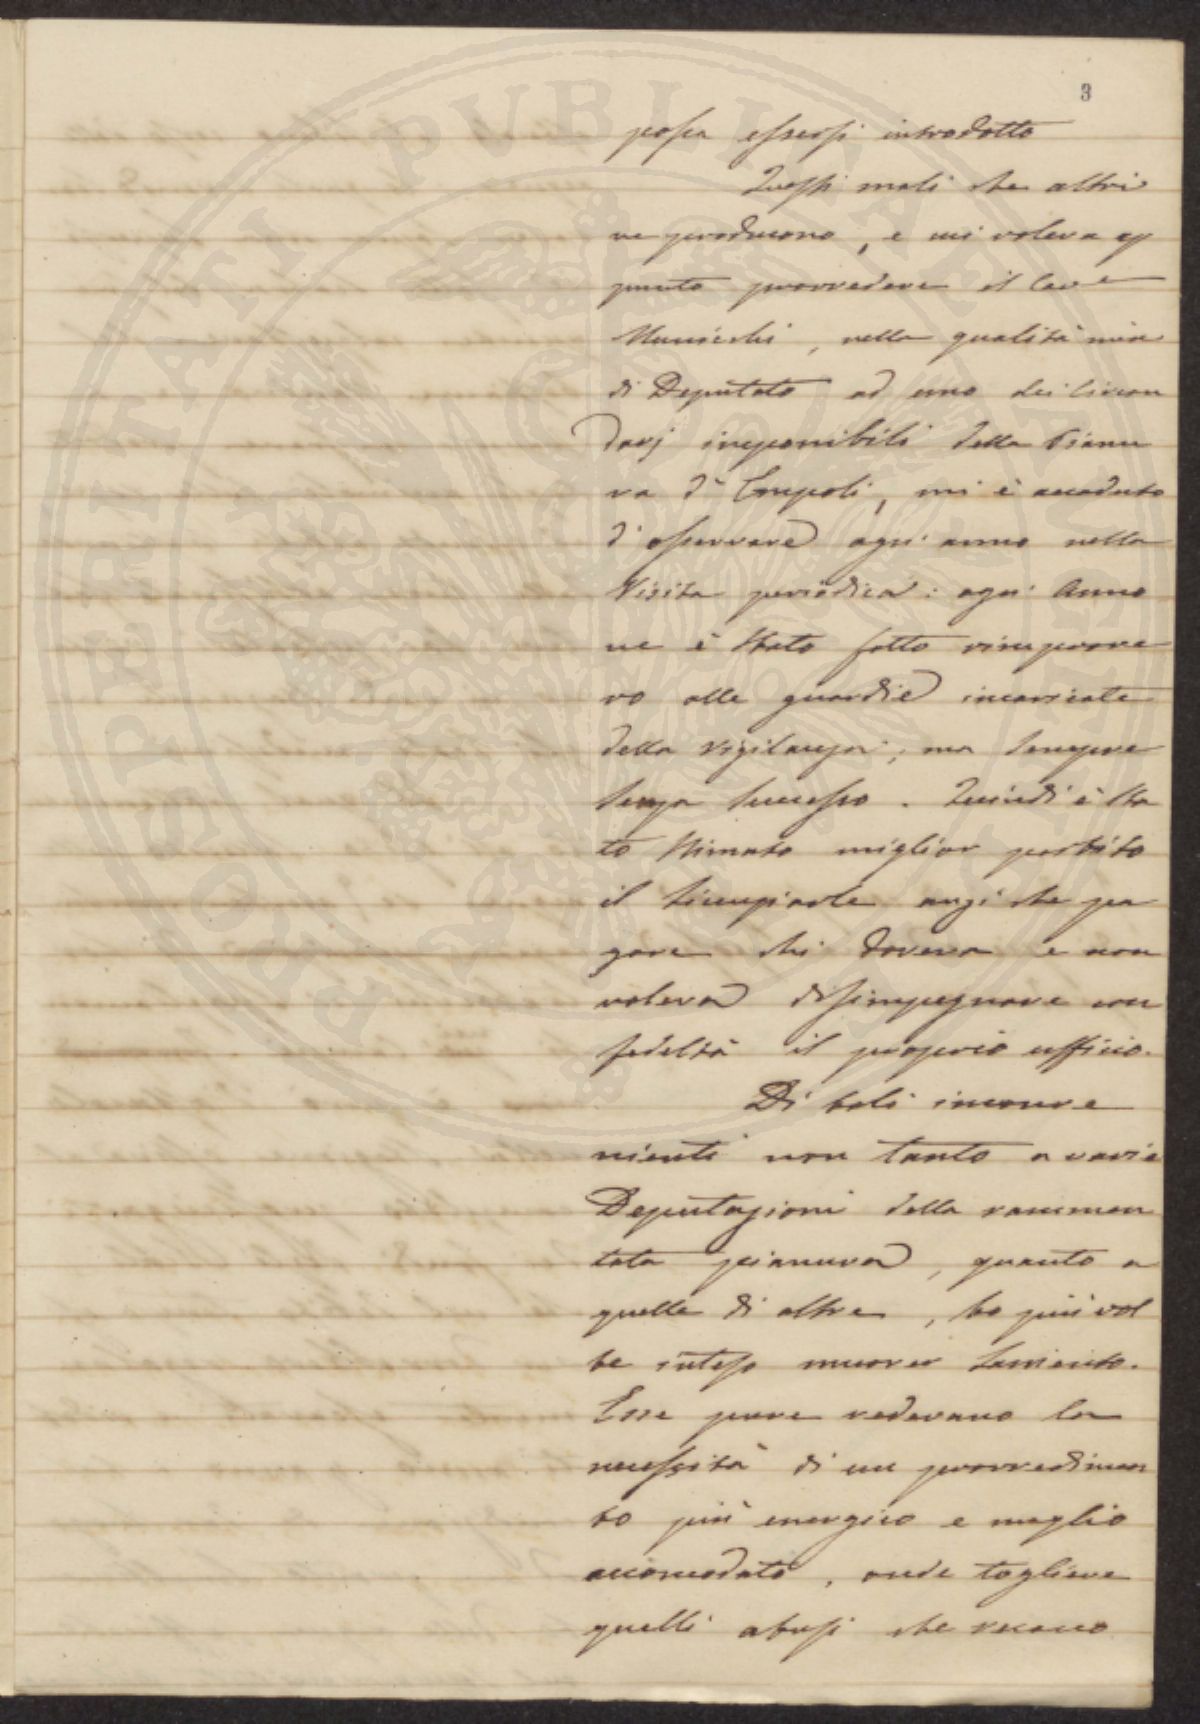 3
possa essersi introdotto
Questi mali che altri
ne producono, e cui voleva ap
punto provvedere il Cav.e
Municchi, nella qualità mia
di Deputato ad uno dei Circon
darj imponibili della Pianu
ra d'Empoli, mi è accaduto
d'osservare ogni anno nella
Visita periodica: ogni Anno
ne è stato fatto rimprove
ro alle guardie incaricate
della vigilanza; ma sempre
senza successo. Quindi è sta
to stimato miglior partito
il licenziarle anzi che pa
gare chi doveva e non
voleva disimpegnare con
fedeltà il proprio ufficio.
Di tali inconve
nienti non tanto a varie
Deputazioni della rammen
tata pianura, quanto a
quelle di altre, ho più vol
te inteso muover lamento.
Esse pure vedevano la
necessità di un provvedimen
to più energico e meglio
accomodato, onde togliere
quelli abusi che recano
PERITATI PVBLICAE